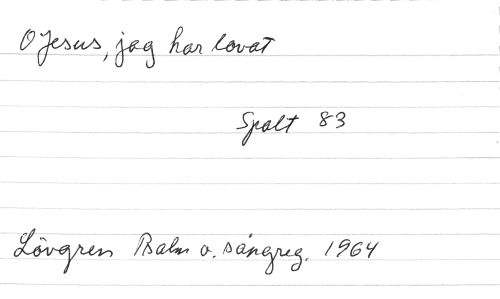 O Jesus, jag har lovat
Spalt 83
Lövgren Psalm o. sångreg. 1964